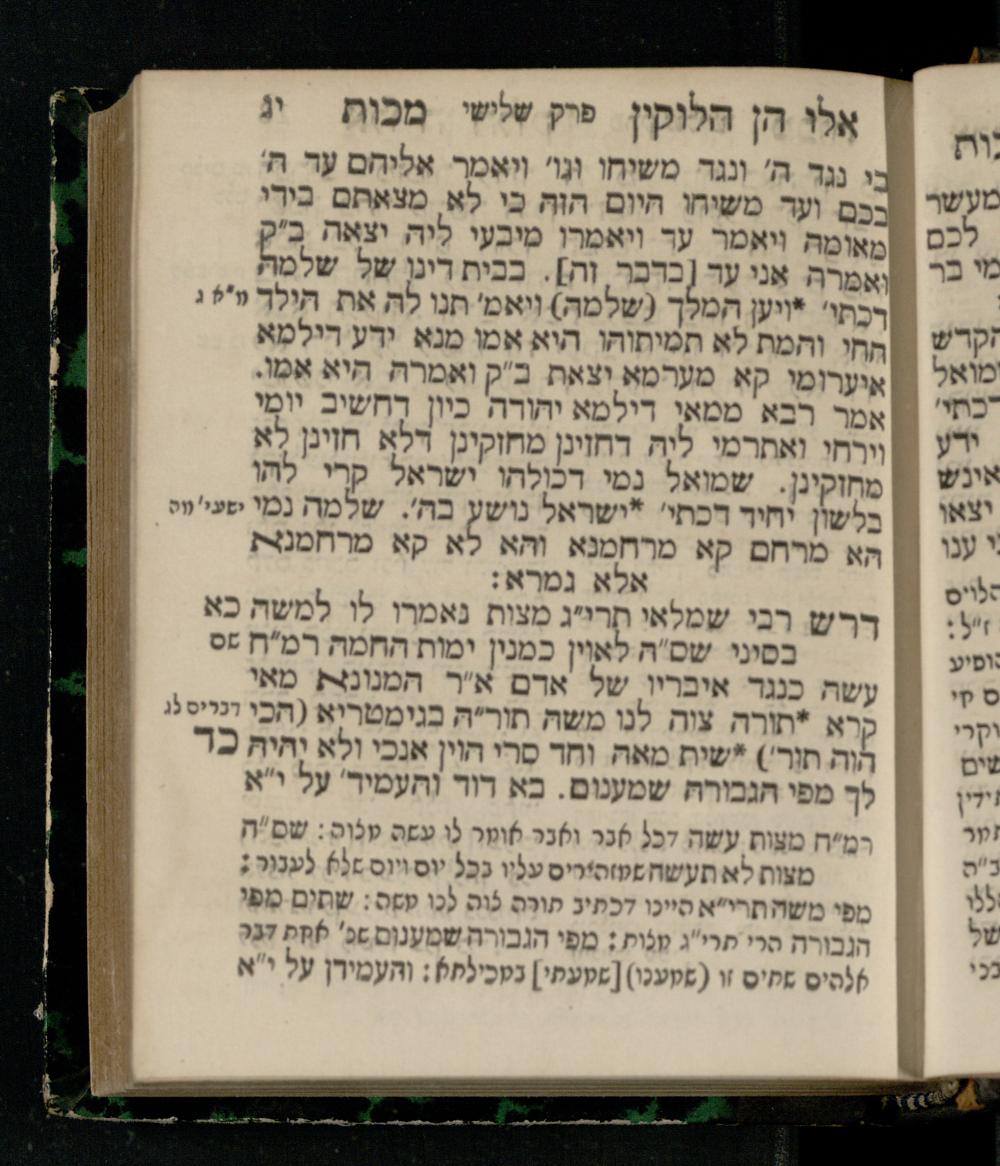 אלו הן הלוקין פרק שלישי מכות יג
כי נגד ה׳ ונגד משיחו וגו׳ ויאמר אליהם עד ה׳
בכם ועד משיחו היום הזה כי לא מצאתם בידי
מאומה ויאמר עד ויאמרו מיבעי ליה יצאה ב״ק
ואמרה אני עד [בדבר זה]. בבית דינו של שלמה
דכתי׳ *ויען המלך (שלמה) ויאמ׳ תנו לה את הילד מ״א ג
החי והמת לא תמיתוהו היא אמו מנא ידע דילמא
איערומי קא מערמא יצאת ב״ק ואמרה היא אמו.
אמר רבא ממאי דילמא יהודה כיון דחשיב יומי
וירחי ואתרמי ליה דחזינן מחזקינן דלא חזינן לא
מחזקינן. שמואל נמי דכולהו ישראל קרי להו
בלשון יחיד דכתי׳ *ישראל נושע בה׳. שלמה נמי ישעי׳ מה
הא מרחם קא מרחמנא והא לא קא מרחמנא
אלא גמרא:
דרש רבי שמלאי תרי״ג מצות נאמרו לו למשה כא
בסיני שס״ה לאוין כמנין ימות החמה רמ״ח שם
עשה כנגד איבריו של אדם א״ר המנונא מאי
קרא *תורה צוה לנו משה תור״ה בגימטריא (הכי דברים לג
הוה תור׳) *שית מאה וחד סרי הוין אנכי ולא יהיה כד
לך מפי הגבורה שמענום. בא דוד והעמיד׳ על י״א
רמ״ח מצות עשה דכל אבר ואבר אומר לו עשה מצוה: שס״ה
מצות לא תעשה שמזהירים עליו בכל יום ויום שלא לעבור:
מפי משה תרי״א היינו דכתיב תורה צוה לנו משה: שתים מפי
הגבורה הרי תרי״ג מצות: מפי הגבורה שמענום שנ׳ אחת דבר
אלהים שתים זו (שמענו) [שמעתי] במכילתא: והעמידן על י״א
כות
מעשר
לכם
מי בר
הקדש
דכתי׳
ידע
אינש
יצאו